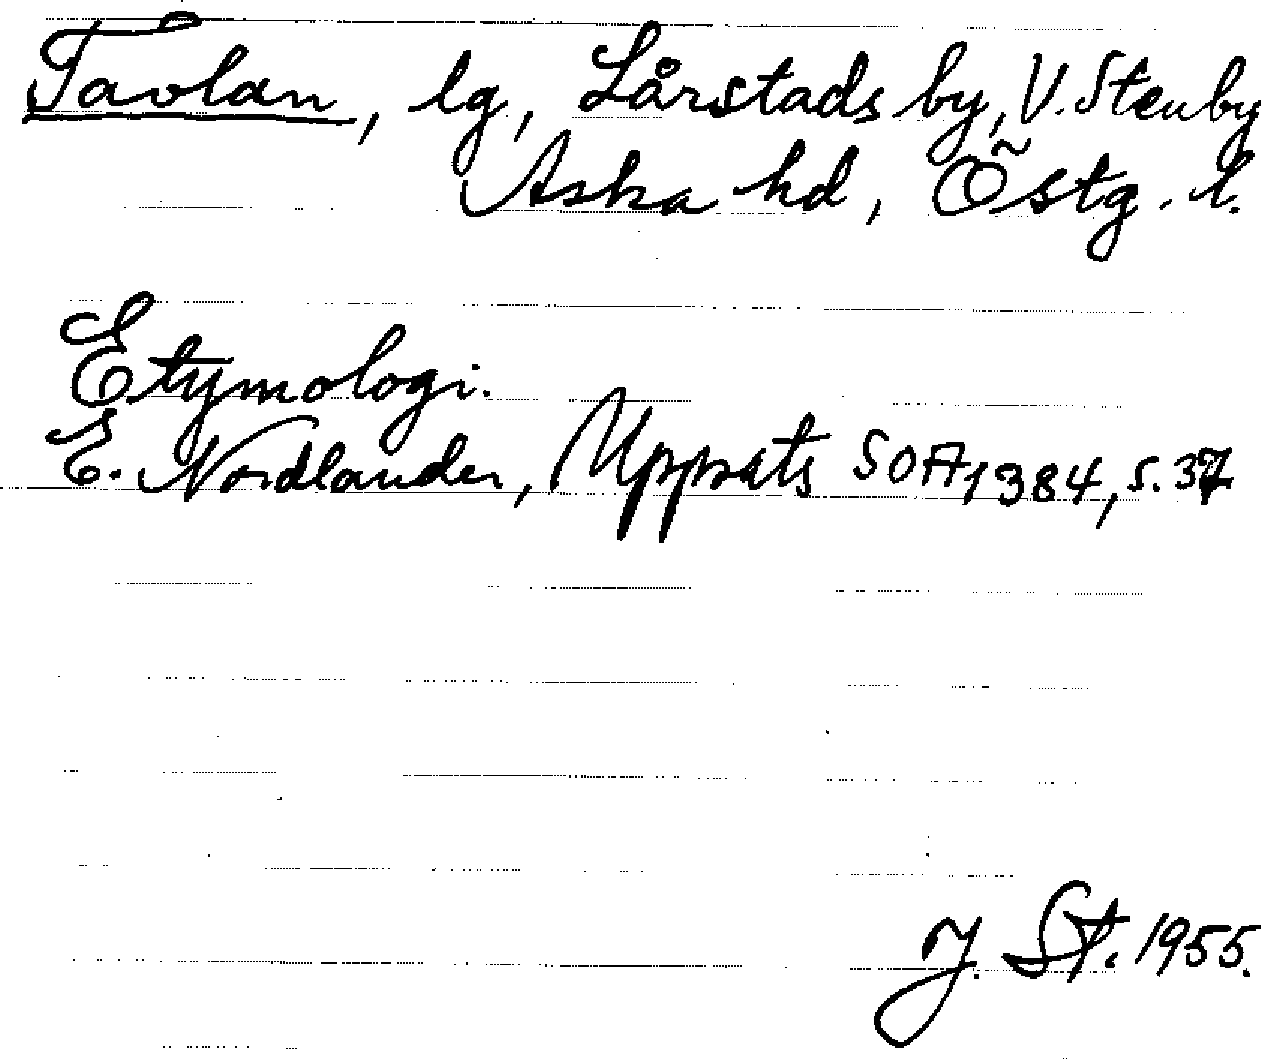 Tavlan, lg, Lårstads by, V. Stenby
Aska hd, Östg. l.
Etymologi.
E. Nordlander, Uppsats SOFA 1384, s. 37
J. St. 1955.